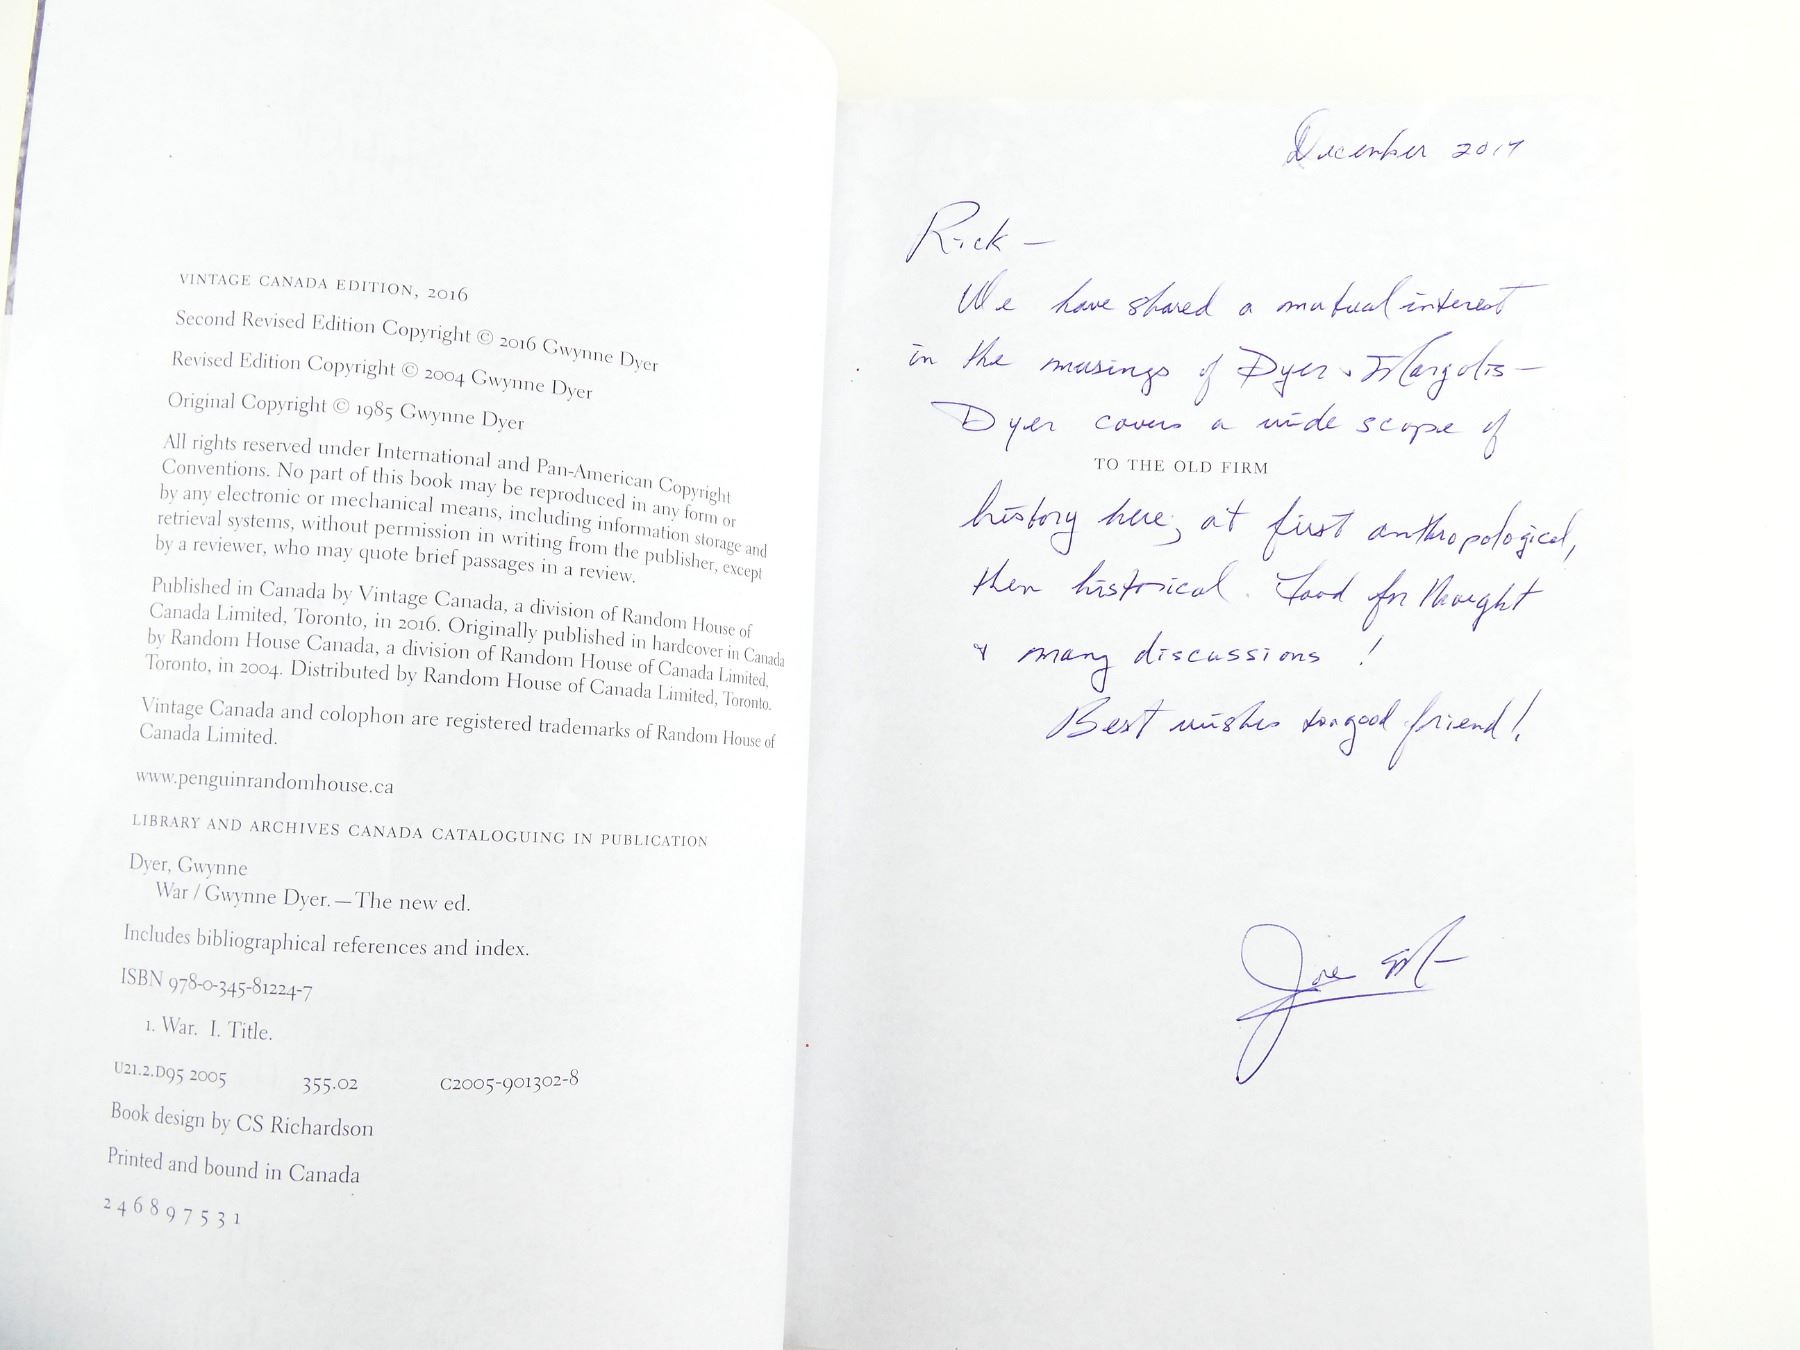 VINTAGE CANADA EDITION, 2016
Second Revised Edition Copyright © 2016 Gwynne Dyer
Revised Edition Copyright © 2004 Gwynne Dyer
Original Copyright © 1985 Gwynne Dyer
All rights reserved under International and Pan-American Copyright
Conventions. No part of this book may be reproduced in any form or
by any electronic or mechanical means, including information storage and
retrieval systems, without permission in writing from the publisher, except
by a reviewer, who may quote brief passages in a review.
Published in Canada by Vintage Canada, a division of Random House of
Canada Limited, Toronto, in 2016. Originally published in hardcover in Canada
by Random House Canada, a division of Random House of Canada Limited,
Toronto, in 2004. Distributed by Random House of Canada Limited, Toronto.
Vintage Canada and colophon are registered trademarks of Random House of
Canada Limited.
www.penguinrandomhouse.ca
LIBRARY AND ARCHIVES CANADA CATALOGUING IN PUBLICATION
Dyer, Gwynne
War / Gwynne Dyer.—The new ed.
Includes bibliographical references and index.
ISBN 978-0-345-81224-7
1. War. I. Title.
U21.2.D95 2005 355.02 C2005-901302-8
Book design by CS Richardson
Printed and bound in Canada
2 4 6 8 9 7 5 3 1
December 2017
Rick —
We have shared a mutual interest
in the musings of Dyer & Margolis —
Dyer covers a wide scope of
TO THE OLD FIRM
history here; at first anthropological,
then historical. Food for thought
& many discussions !
Best wishes to a good friend!
Joe